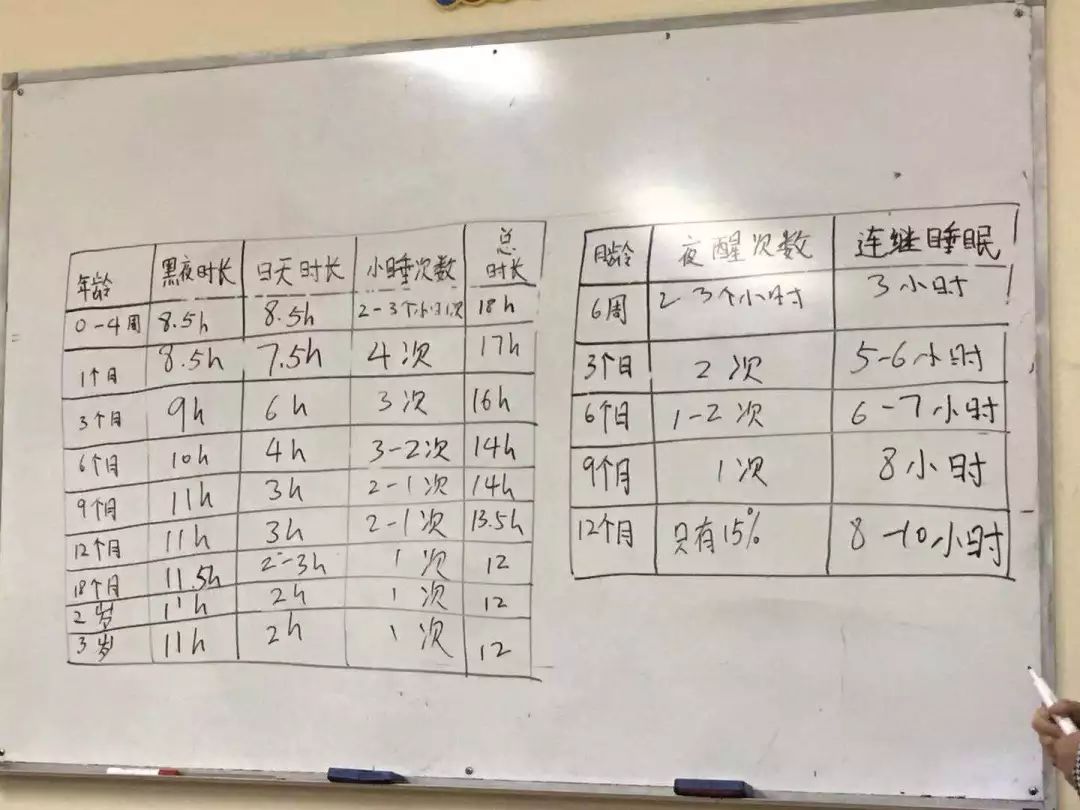 年龄 黑夜时长 白天时长 小睡次数 总时长
0-4周 8.5h 8.5h 2-3个小时1次 18h
1个月 8.5h 7.5h 4次 17h
3个月 9h 6h 3次 16h
6个月 10h 4h 3-2次 14h
9个月 11h 3h 2-1次 14h
12个月 11h 3h 2-1次 13.5h
18个月 11.5h 2-3h 1次 12
2岁 11h 2h 1次 12
3岁 11h 2h 1次 12
月龄 夜醒次数 连继睡眠
6周 2-3个小时 3小时
3个月 2次 5-6小时
6个月 1-2次 6-7小时
9个月 1次 8小时
12个月 只有15% 8-10小时